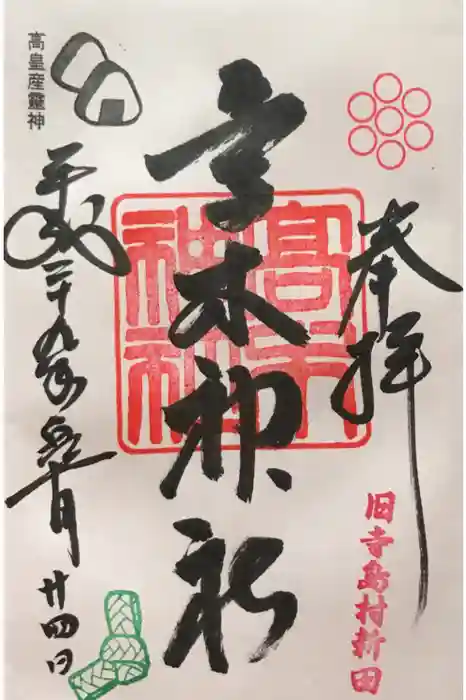 奉拝
旧寺島村新田
高木神社
高木神社
高皇産靈神
平成二十九年
月廿四日